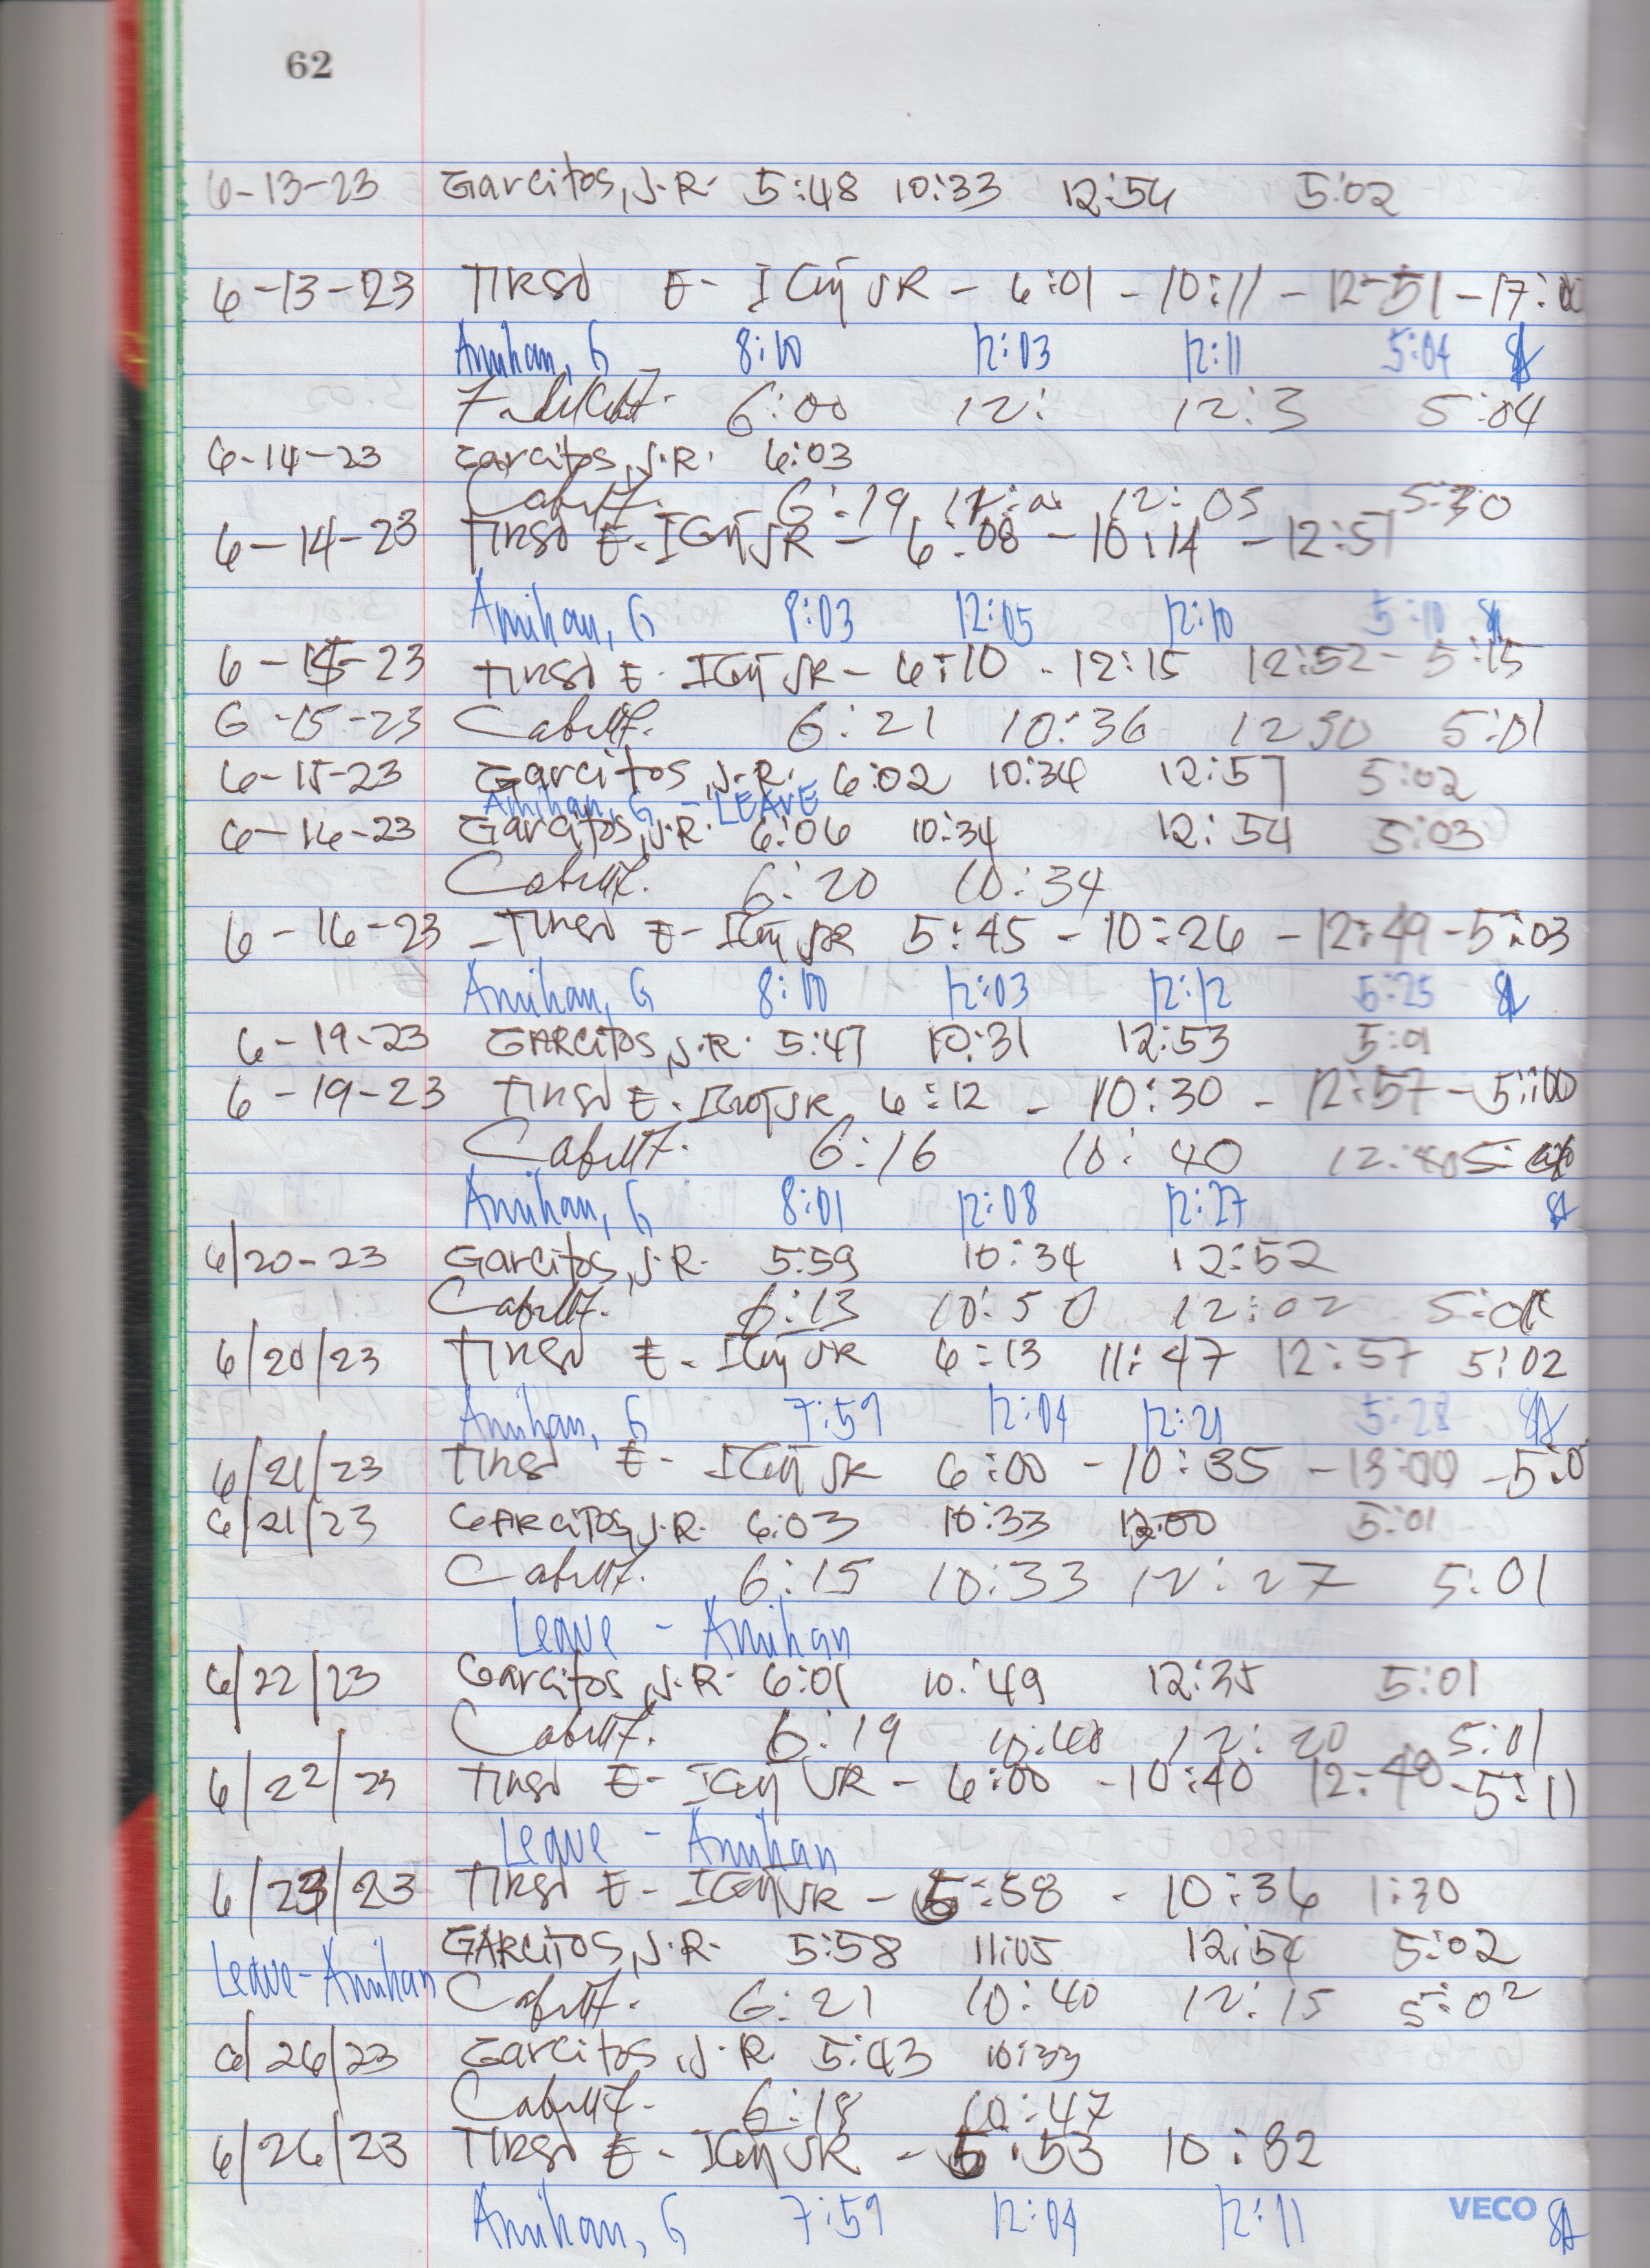 62
6-13-23 Garcitos, J.R. 5:48 10:33 12:54 5:02
6-13-23 TIRSO E- JR - 6:01 - 10:11 - 12-51 - 17:00
Amihan, G 8:10 12:03 12:11 5:04
6:00 12: 12:3 5:04
6-14-23 Garcitos, J.R. 6:03
6:19 12:05 5:30
6-14-23 TIRSO E- JR - 6:08 - 10:14 - 12:51
Amihan, G 8:03 12:05 12:10 5:10
6-15-23 TIRSO E- JR - 6:10 - 12:15 12:52 - 5:15
6-15-23 6:21 10:36 12 30 5:01
6-15-23 Garcitos, J.R. 6:02 10:34 12:57 5:02
Amihan, G - LEAVE
6-16-23 Garcitos, J.R. 6:06 10:34 12:54 5:03
6:20 10:34
6-16-23 - TIRSO E- JR 5:45 - 10:26 - 12:49 - 5:03
Amihan, G 8:10 12:03 12:12 5:25
6-19-23 GARCITOS, J.R. 5:47 10:31 12:53 5:01
6-19-23 TIRSO E- JR 6:12 - 10:30 - 12:57 - 5:00
6:16 10:40
Amihan, G 8:01 12:08 12:27
6/20-23 Garcitos, J.R. 5:59 10:34 12:52
6:13 10:50 12:02
6/20/23 TIRSO E- JR 6:13 11:47 12:57 5:02
Amihan, G 7:59 12:04 12:21 5:28
6/21/23 TIRSO E- JR 6:00 - 10:35 - 13:00 - 5:0
6/21/23 GARCITOS, J.R. 6:03 10:33 12:00 5:01
6:15 10:33 12:27 5:01
Leave - Amihan
6/22/23 Garcitos, J.R. 6:01 10:49 12:35 5:01
6:19 10:40 12:20 5:01
6/22/23 TIRSO E- JR - 6:00 - 10:40 12:40 - 5:11
Leave - Amihan
6/23/23 TIRSO E- JR - 5:58 - 10:36 1:30
GARCITOS, J.R. 5:58 11:05 12:54 5:02
Leave-Amihan 6:21 10:40 12:15 5:02
6/26/23 Garcitos, J.R. 5:43 10:33
6:18 10:47
6/26/23 TIRSO E- JR - 5:53 10:32
Amihan, G 7:59 12:04 12:11
VECO